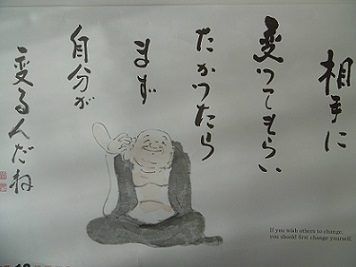 相手に
変ってもらい
たかったら
まず
自分が
変るんだね
If you wish others to change,
you should first change yourself.